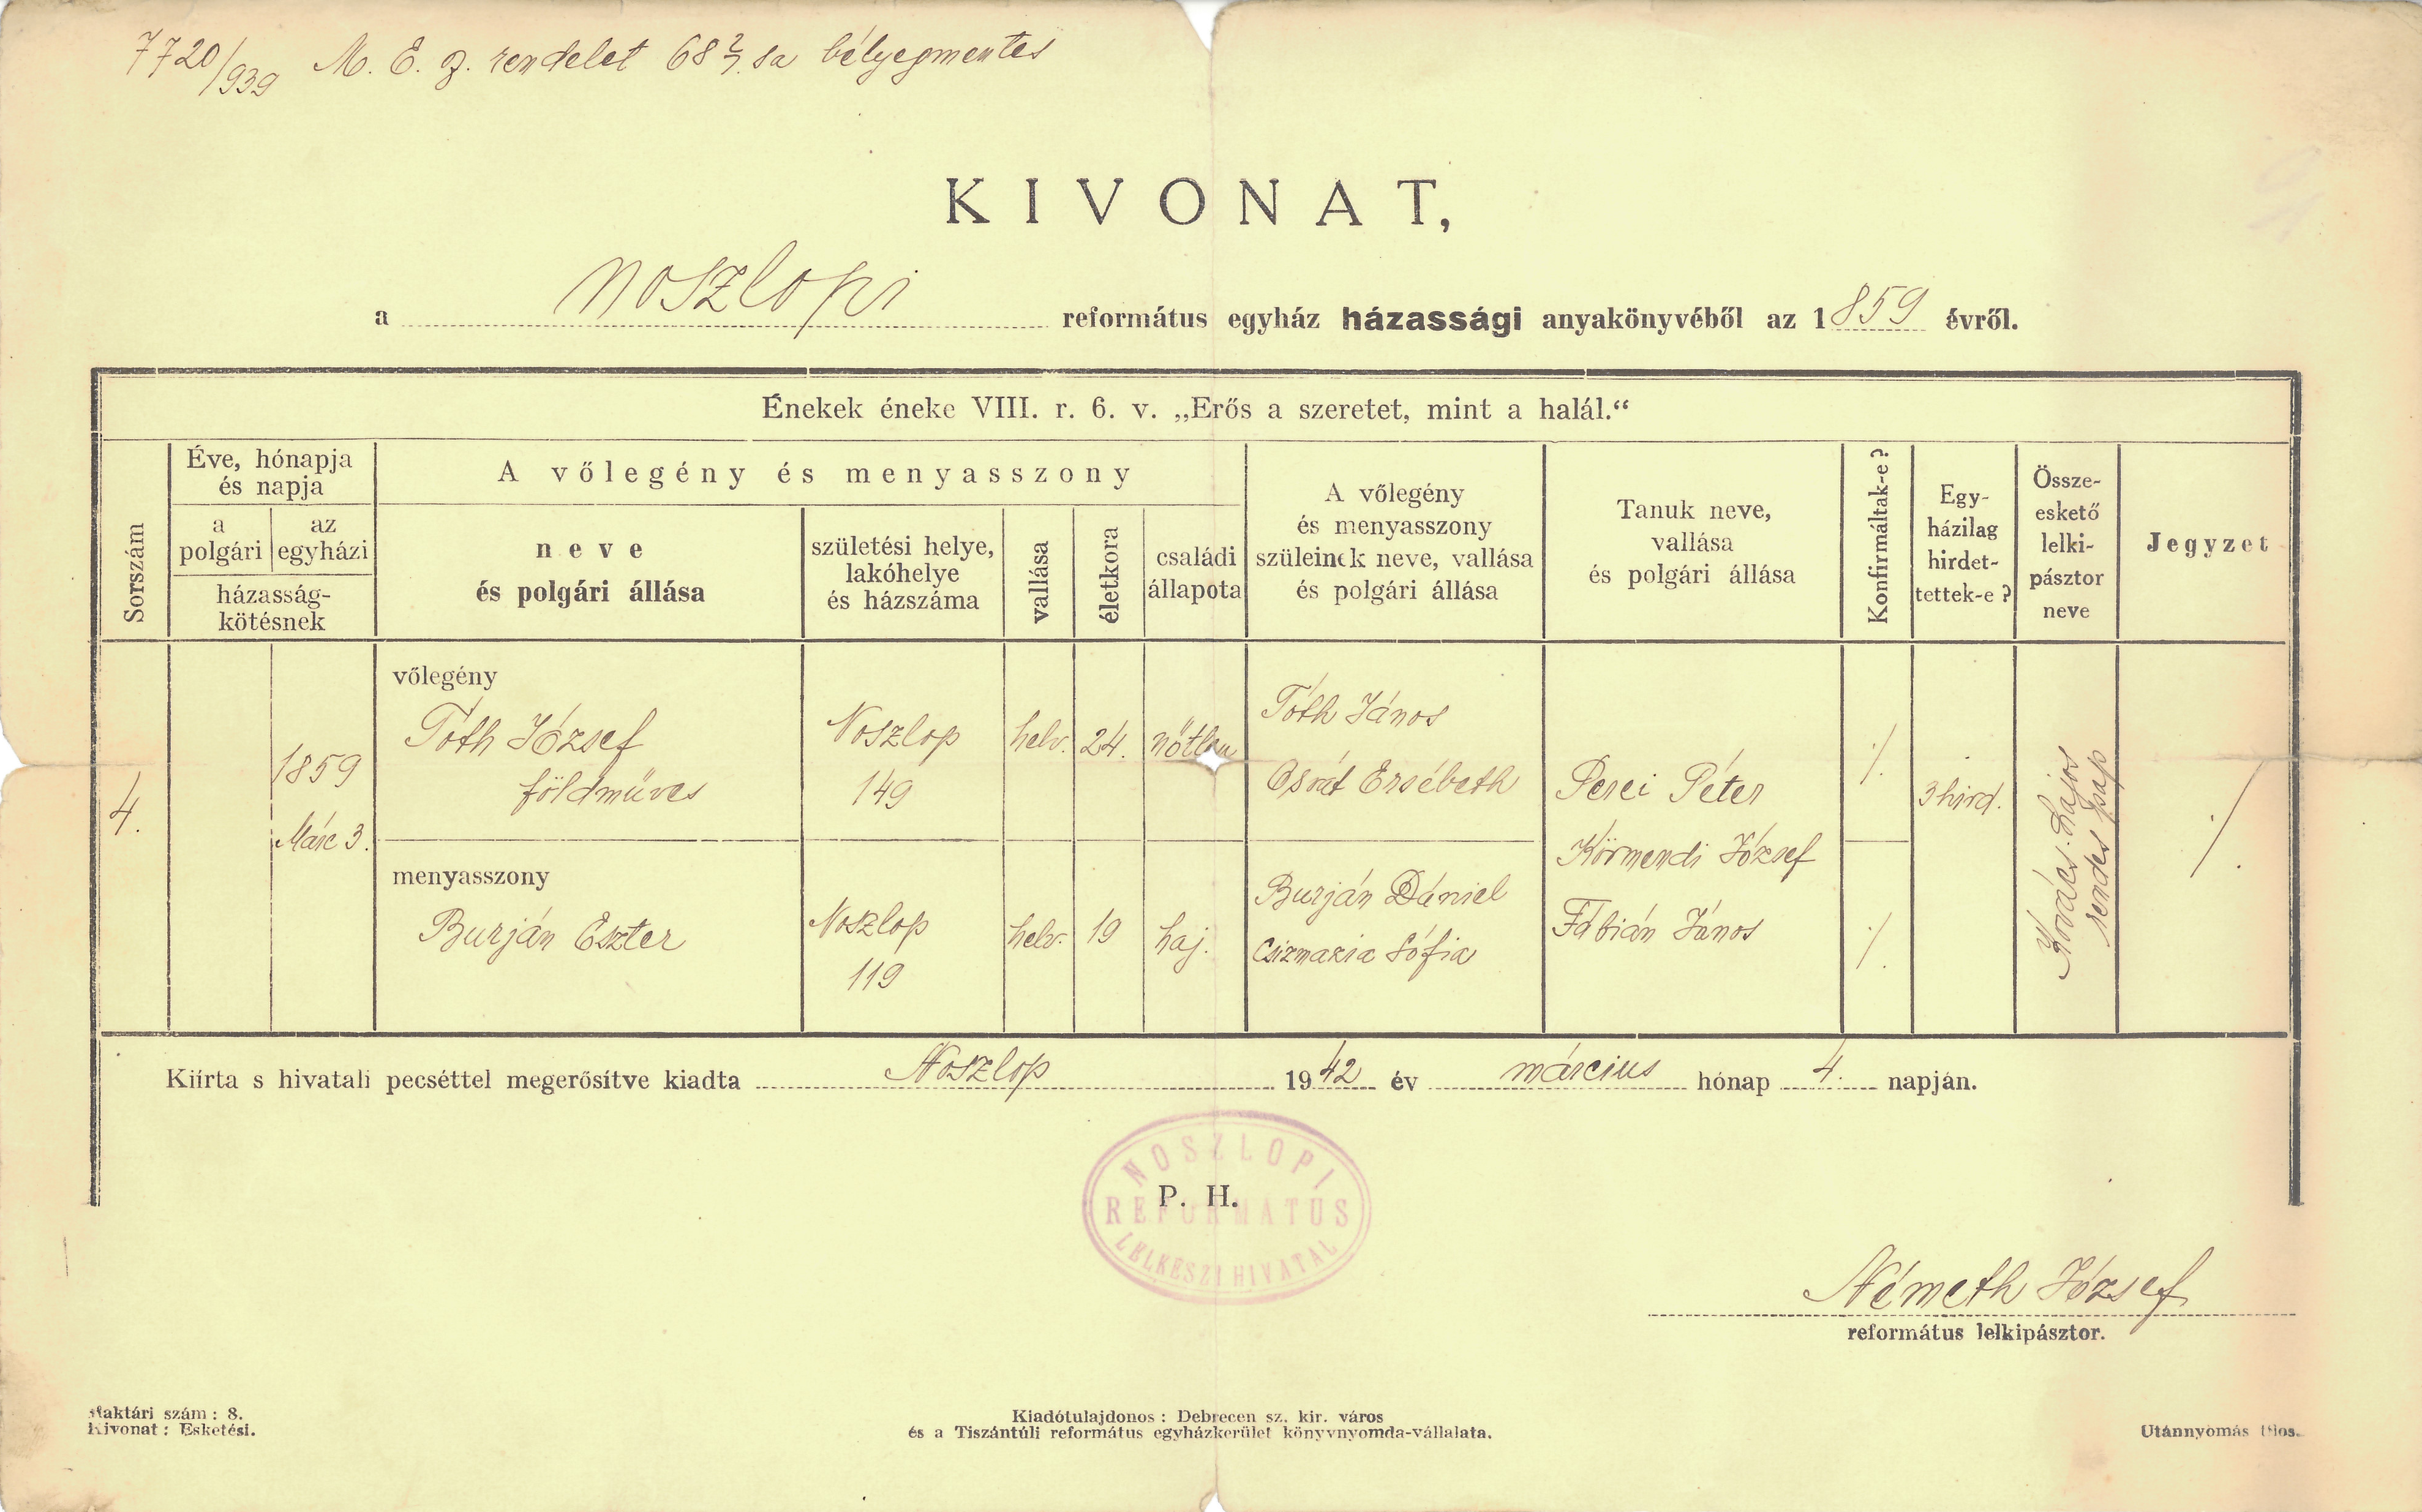 7720/939 M. E. sz. rendelet 68 § sa bélyegmentes
KIVONAT,
a Noszlopi református egyház házassági anyakönyvéből az 1859 évről.
Énekek éneke VIII. r. 6. v. „Erős a szeretet, mint a halál.“
Sorszám
Éve, hónapja
és napja
a
polgári
az
egyházi
házasság-
kötésnek
A vőlegény és menyasszony
neve
és polgári állása
születési helye,
lakóhelye
és házszáma
vallása
életkora
családi
állapota
A vőlegény
és menyasszony
szüleinek neve, vallása
és polgári állása
Tanuk neve,
vallása
és polgári állása
Konfirmáltak-e?
Egy-
házilag
hirdet-
tettek-e?
Össze-
eskető
lelki-
pásztor
neve
Jegyzet
4.
1859
Márc 3.
vőlegény
Tóth József
földműves
Noszlop
149
helv.
24.
nőtlen
Tóth János
Osvát Ersébeth
menyasszony
Burján Eszter
Noszlop
119
helv.
19
haj.
Burján Dániel
Csizmazia Sófia
Perei Péter
Körmendi József
Fábián János
·/.
·/.
3 hird.
Kovács Lajos
rendes pap
·/.
Kiírta s hivatali pecséttel megerősítve kiadta Noszlop 1942 év március hónap 4. napján.
P. H.
NOSZLOPI
REFORMÁTUS
LELKÉSZI HIVATAL
Németh József
református lelkipásztor.
Raktári szám: 8.
Kivonat: Esketési.
Kiadótulajdonos: Debrecen sz. kir. város
és a Tiszántúli református egyházkerület könyvnyomda-vállalata.
Utánnyomás tilos.